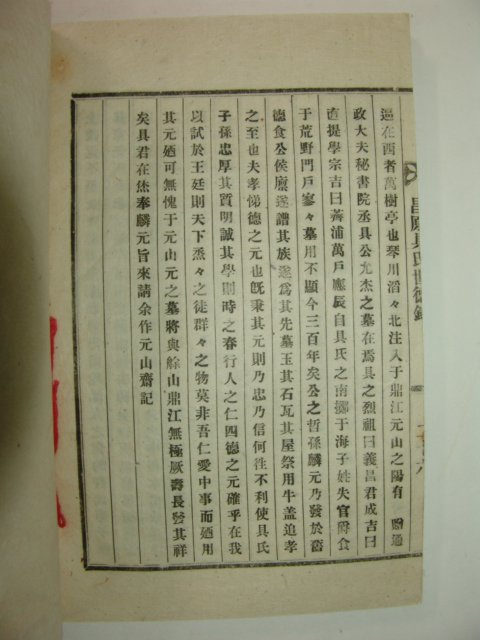 逼在西者萬樹亭也琴川滔々北注入于鼎江元山之陽有 贈通
政大夫秘書院丞具公尤杰之墓在焉具之烈祖曰義昌君成吉曰
直提學宗吉曰善浦萬戶應辰自具氏之南擲于海子姓失官爵食
于荒野門戶寥々墓用不顯今三百年矣公之哲孫麟元乃發於舊
德食公侯廩遂譜其族遂爲其先墓玉其石瓦其屋祭用牛盖追孝
之至也夫孝悌德之元也旣秉其元則乃忠乃信何徃不利使具氏
子孫忠厚其質明誠其學則時之春行人之仁四德之元確乎在我
以試於王廷則天下烝々之徒群々之物莫非吾仁愛中事而廼用
其元廼可無愧于元山元之墓將與餘山鼎江無極厥壽長發其祥
矣具君在烋奉麟元旨來請余作元山齋記
昌原具氏世德錄